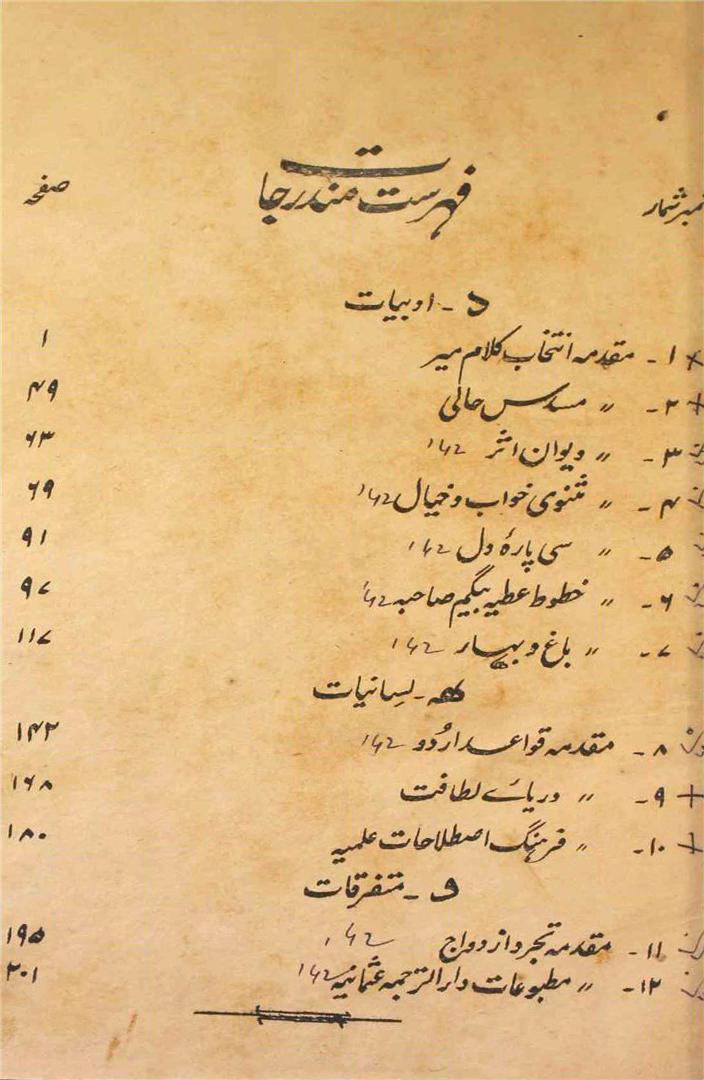 نمبر شمار فہرست مندرجات صفحہ
د - ادبیات
× ۱ - مقدمہ انتخاب کلام میر ۱
+ ۲ - 〃 مسدس حالی ۴۹
۳ - 〃 دیوان اثر ۶۳
۴ - 〃 مثنوی خواب و خیال ۶۹
۵ - 〃 سی پارۂ دل ۹۱
۶ - 〃 خطوط عطیہ بیگم صاحبہ ۹۷
۷ - 〃 باغ و بہار ۱۱۷
ھ - لسانیات
۸ - مقدمہ قواعد اردو ۱۴۲
+ ۹ - 〃 دریائے لطافت ۱۶۸
+ ۱۰ - 〃 فرہنگ اصطلاحات علمیہ ۱۸۰
و - متفرقات
۱۱ - مقدمہ تجرد و ازدواج ۱۹۵
۱۲ - 〃 مطبوعات دارالترجمہ عثمانیہ ۲۰۱